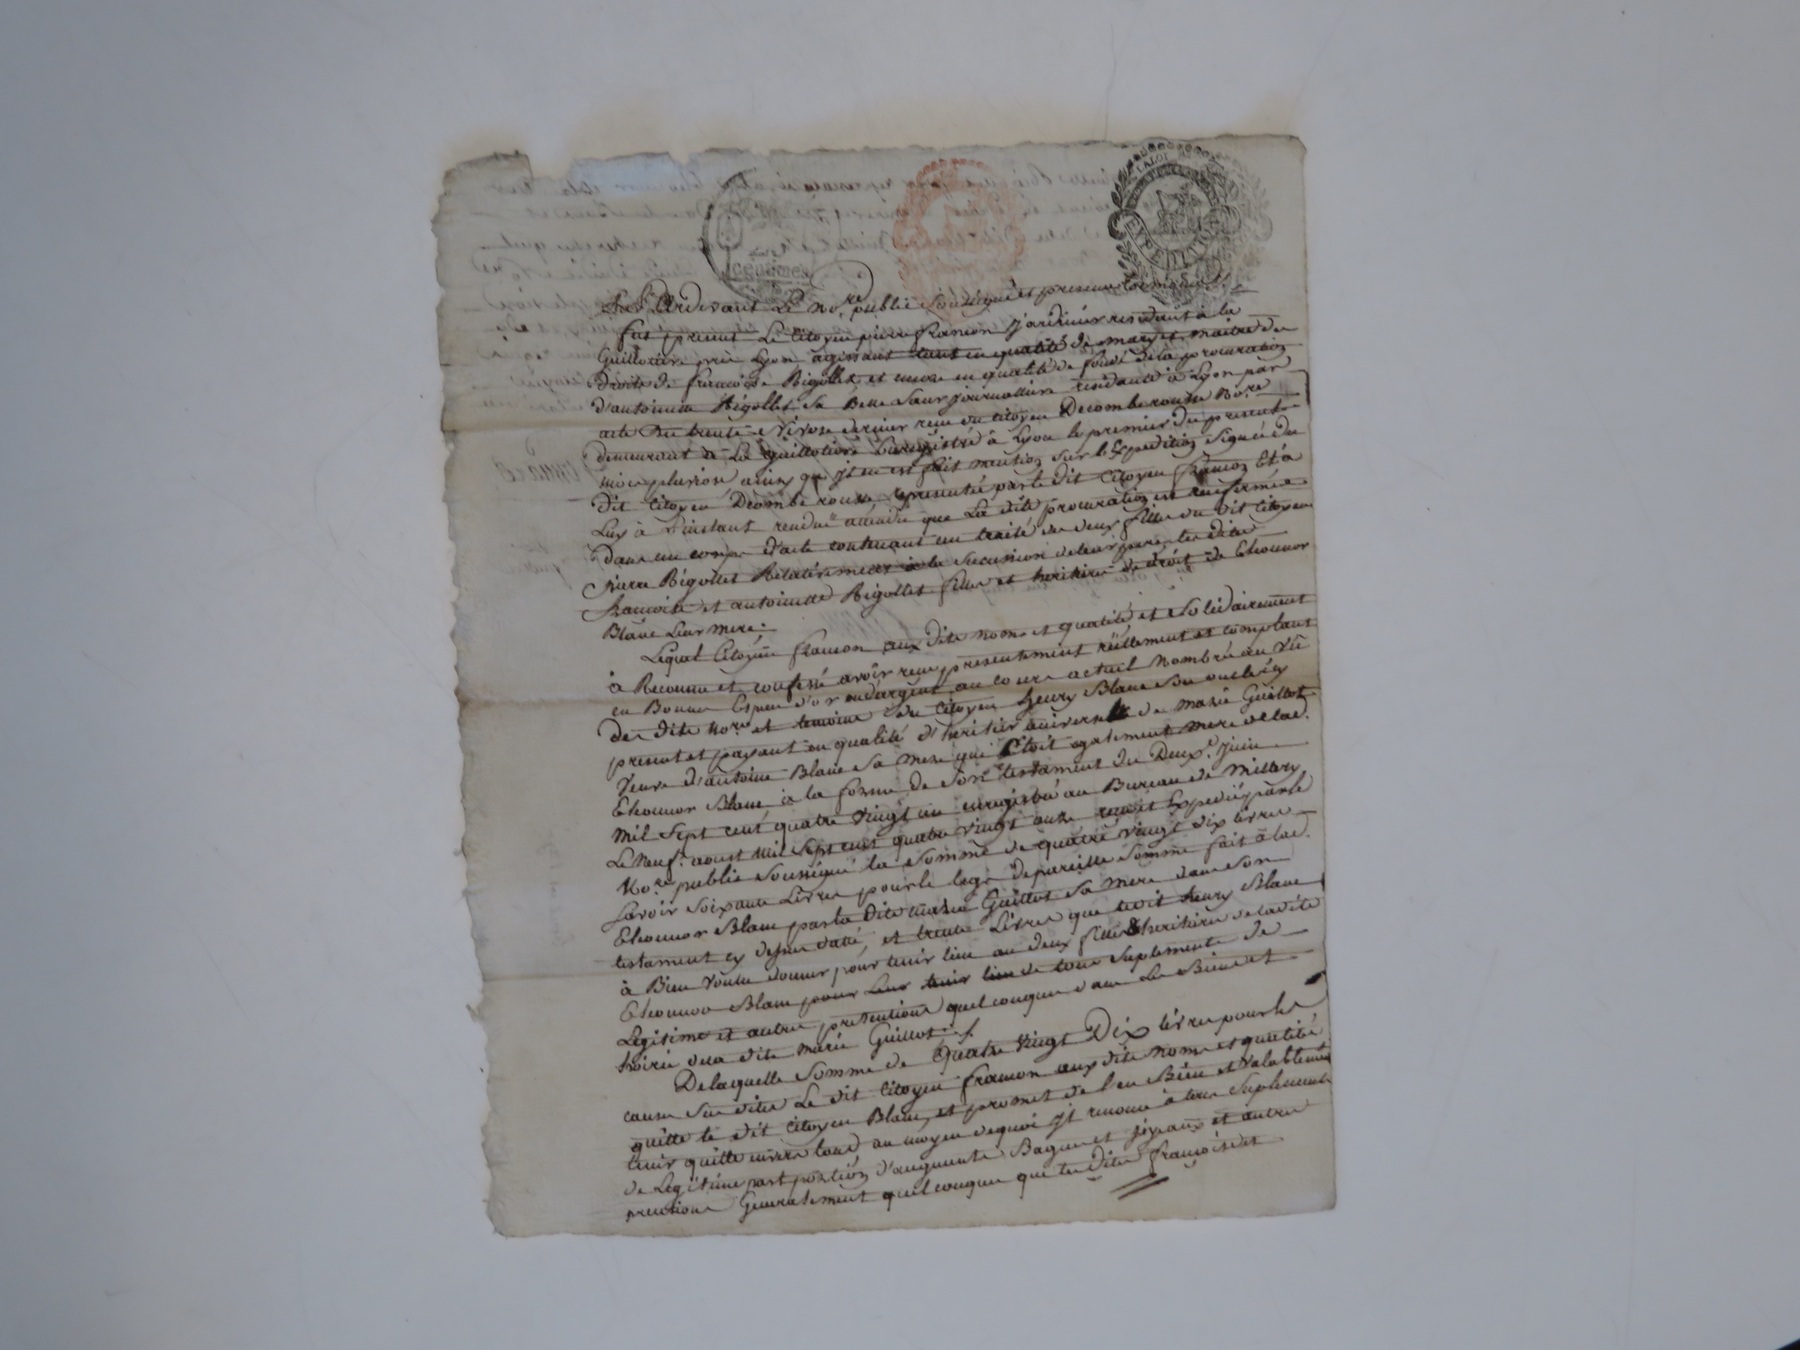 LA LOI
EXPEDITION
centimes
Pardevant Le No.re public Soussigné et presence des temoins
fut present Le Citoyen pierre francon Jardinier residant a la
Guillotiere près Lyon agissant tant en qualité de mary et maitre des
Droits de francoise Rigollet et encore en qualité de fondé de la procuration
d'antoinette Rigollet Sa Belle Sœur journalliere residante à Lyon par
acte Du trente Nivose dernier recu du citoyen Decomberousse No.re
demeurant à La Guillotiere Enregistré à Lyon le premier du present
mois pluviose ainsy qu'jl en est fait mention sur l'Expedition Signée du
Dit Citoyen Decomberousse representée par le dit Citoyen francon Et à
Luy à L'instant rendue attendu que La dite procuration est renfermée
dans un corps d'acte contenant un traité des deux filles du dit Citoyen
Pierre Rigollet Relativement à la Succession de leur pere les dites
francoise et antoinette Rigollet filles et heritieres de droit de Eleonnor
Blanc Leur mere.
Lequel Citoyen francon aux dits noms et qualités et solidairement
à Reconnu et confessé avoir recu presentement réellement et comptant
en Bonnes Especes d'or ou d'argent au cours actuel Nombré au Vû
Des dits No.re et temoins du Citoyen henry Blanc Son oncle icy
present et payant en qualité d'heritier universelle de Marie Guillot
Veuve d'antoine Blanc Sa mere qui Etoit egalement mere de lad.
Eleonnor Blanc à la forme de Son testament du Deux.e Juin
mil Sept cent quatre vingt un enregistré au Bureau de Millery
Le neuf aoust mil Sept cent quatre vingt onze recû et Expedié par le
No.re public Soussigné la Somme de quatre vingt dix livres
savoir Soixante Livres pour le legs de pareille Somme fait à lad.
Eleonnor Blanc par la Dite Marie Guillot Sa mere dans son
testament cy dessus daté, et trente Livres que le dit henry Blanc
à Bien Voulu donner pour tenir lieu aux deux filles & heritieres de la dite
Eleonnor Blanc pour Leur tenir lieu de tous Suplements de
Legitime et autres pretentions quelconques dans Les Biens et
hoirie de la dite Marie Guillot
De laquelle Somme de Quatre Vingt Dix livres pour les
causes Sus dites Le dit Citoyen francon aux dits noms et qualités
quitte le dit Citoyen Blanc, et promet de l'en Bien et Valablement
tenir quitte envers tous au moyen de quoi jl renonce à tous Suplements
de Legitime part portion d'augments Bagues et joyeaux et autres
pretentions Generalement quelconques que les dites françoise et